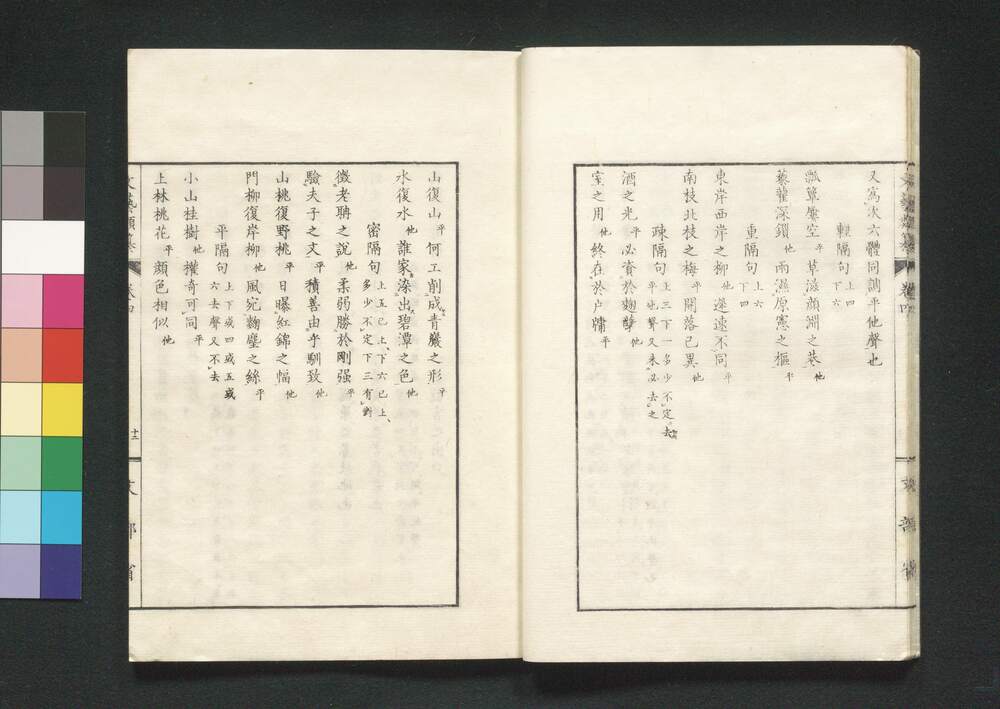 又爲次六體同調平他聲也
輕隔句 上四
下六
瓢簞屢空 平 草滋顔淵之巷 他
藜藋深鎖 他 雨濕原憲之樞 平
重隔句 上六
下四
東岸西岸之柳 他 遲速不同 平
南枝北枝之梅 平 開落已異 他
疎隔句 上三下一多少不定去
平他聲又未必去之
酒之光 平 必資於麴糵 他
室之用 他 終在於户牖 平
山復山 平 何工削成青巖之形 平
水復水 他 誰家染出碧潭之色 他
密隔句 上五已上下六已上
多少不定下三有對
徴老聃之說 他 柔弱勝於剛强 平
驗夫子之文 平 積善由乎馴致 他
山桃復野桃 平 日曝紅錦之幅 他
門柳復岸柳 他 風宛麴塵之絲 平
平隔句 上下或四或五或
六去聲又不去
小山桂樹 他 權奇可同 平
上林桃花 平 顔色相似 他
文藝類纂 卷四
十三
文部省